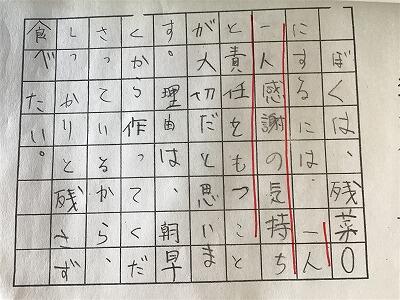 ぼくは、残菜〇
にするには、一人
一人感謝の気持ち
と責任をもつこと
が大切だと思いま
す。理由は、朝早
くから作ってくだ
さっているから、
しっかりと残さず
食べたい。